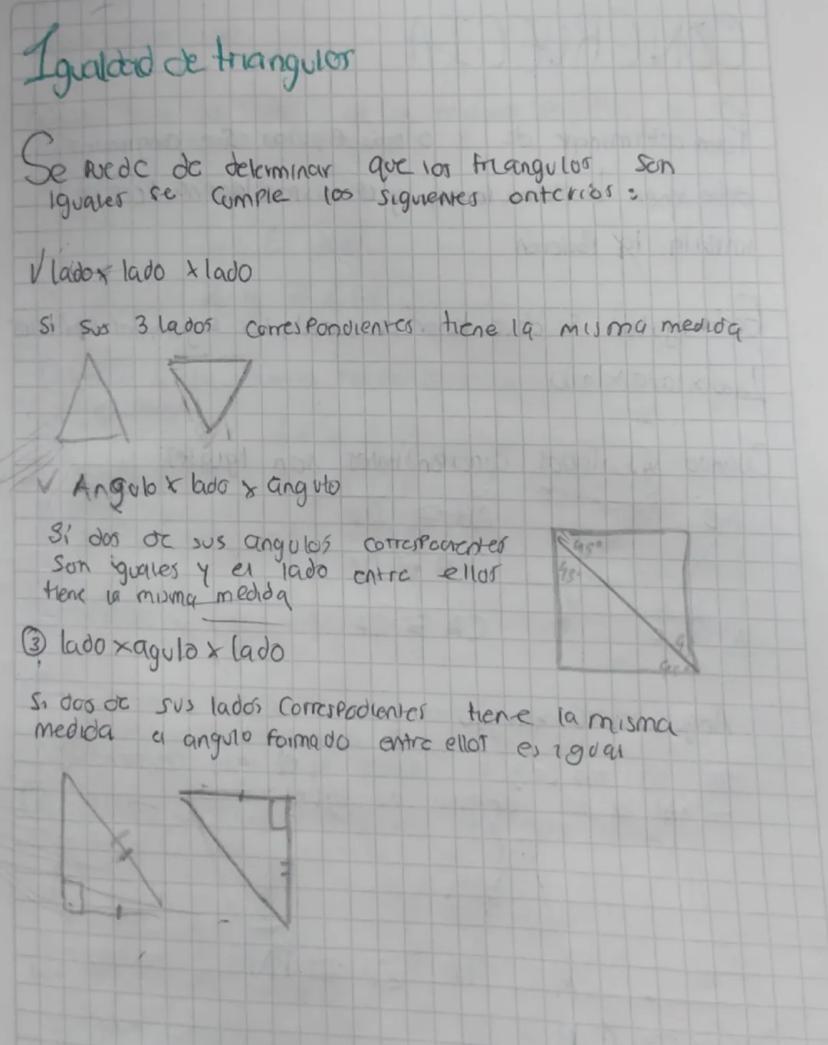 Igualdad de triangulos
Se puede de determinar que los triangulos son
iguales se cumple los siguientes criterios:
√ lado x lado x lado
Si sus 3 lados correspondientes tiene la misma medida
√ Angulo x lado x angulo
Si dos de sus angulos correspodientes
son iguales y el lado entre ellos
tiene la misma medida
45°
45°
③ lado x agulo x lado
Si dos de sus lados correspodientes tiene la misma
medida el angulo formado entre ellos es igual